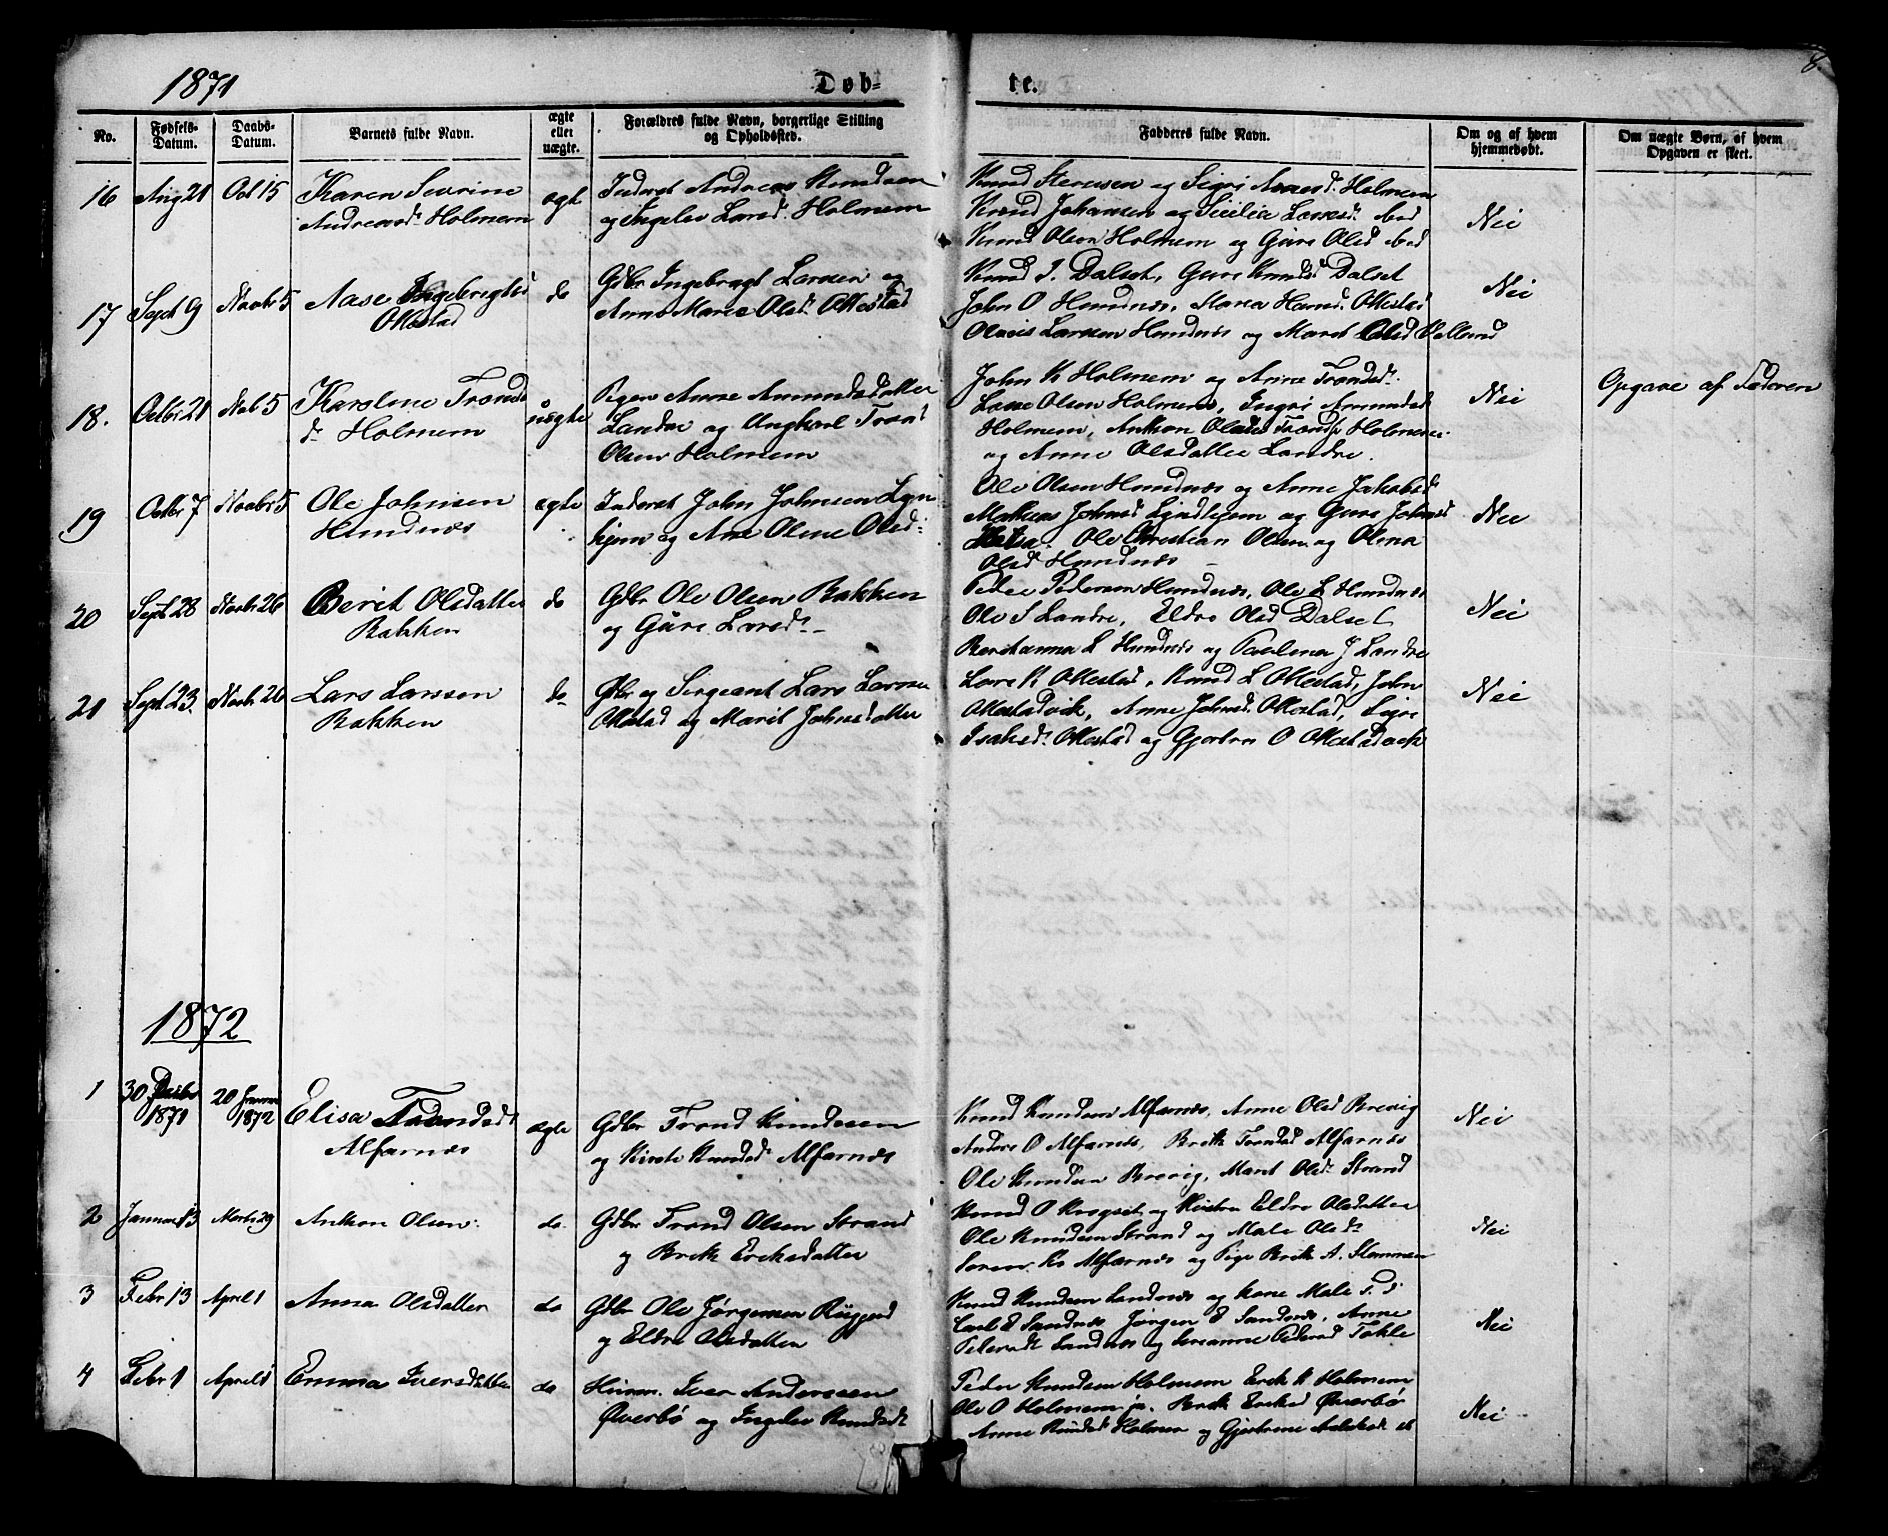 8.
1871
Døb-
te.
No.
Fødsels-
Datum.
Daabs-
Datum.
Barnets fulde Navn.
ægte
eller
uægte.
Forældres fulde Navn, borgerlige Stilling
og Opholdssted.
Fadderes fulde Navn.
Om og af hvem
hjemmedøbt.
Om uægte Børn, af hvem
Opgaven er skeet.
16 Aug 21 Oct 15 Karen Severine
Andreasd. Holmem
ægt
Inderst Andreas Knudsen
og Ingelev Larsd. Holmem
Knud Steensen og Sigri Arnesd. Holmem
Knud Johansen og Sicilie Larsd. ibid
Knud Olsen Holmem og Guri Olsd ibid
Nei
17 Sept 9 Novbr 5 Aase Ingebrigtsd
Okestad
do
Gdbr Ingebregt Larsen og
Anne Marie Olsd. Okestad
Knud I. Dalset, Guri Knudsd Dalset
John O Hundnæs, Maria Hansd. Okestad
Olavis Larsen Hundnæs og Marit Olsd
Nei
18. Octbr 21 Nob 5 Karoline Trondsd
Holmem
uægte
Pigen Anne Amundsdatter
Landre og Ungkarl Trond
Olsen Holmem
John K Holmem og Anne Trondsd.
Lasse Olsen Holmem, Ingri Amundsd
Holmem, Anthon Holmem
og Anne Olsdatter Landre.
Nei
Opgave af Faderen
19 Octbr 7 Novbr 5 Ole Johnsen
Hundnæs
ægte
Inderst John Johnsen Lyn
hjem og Ane Oline Olsd.
Ole Olsen Hundnæs og Anne Jakobsd
Mathias Johnsd Lyndhjem og Guri Johnsd
Ole Christian Olsen og Olena
Olsd Hundnæs
Nei
20 Sept 28 Novbr 26 Berit Olsdatter
Bakken
do
Gdbr Ole Olsen Bakken
og Guri Larsd.
Peder Pedersen Hundnæs, Ole L Hundnæs
Ole I Landre, Eldre Olsd Dalset
Beritanna L Hundnæs og Paulina J Landre
Nei
21 Sept 23. Novbr 26 Lars Larssen
Bakken
do
Gdbr og Sergeant Lars Larsen
Okestad og Marit Johnsdatter
Lars K Okestad, Knud L Okestad, John
Okestadvik, Anne Johnsd. Okestad,
Isaksd. Okestad og Gjertru O Okestadvik
Nei
1872
1 30 Decbr
1871
20 Januar
1872
Elisa Trondsdt
Alfarnæs
ægte
Gdbr Trond Knudssen
og Kirsti Knudsdt Alfarnæs
Knud Knudsen Alfarnæs, Anne Olsd Brevig
Anders O Alfarnæs, Brit Trondsd Alfarnæs
Ole Knudsen Brevig, Marit Olsd. Strand
Nei
2 Januar 13 Marts 29 Anthon Olsen
do.
Gdbr Trond Olsen Strand
og Brit Ericksdatter
Knud O og Eldre Olsdatter
Ole Knudsen Strand og Male Olsd.
Søren Ks Alfarnæs og Pige Brit A.
Nei
3 Febr 13 April 1 Anna Olsdatter
do
Gdbr Ole Jørgensen
og Eldri Olsdatter
Knud Knudsen Sandnæs og kone Male T.d
Carl E Sandnæs Jørgen E Sandnæs, Anne
Pedersdt Sandnæs og Pedersd Tokle
Nei
4 Febr 1 April 1 Emma Iversdatter
do
Iver Andersen
Øverbø og Ingelev Knudsdt
Peder Knudsen Holmem Erik K Holmem
Ole O Holmem jr. Brit Eriksd Øverbø
Anne Knudsd Holmem og Gjertrine
Nei